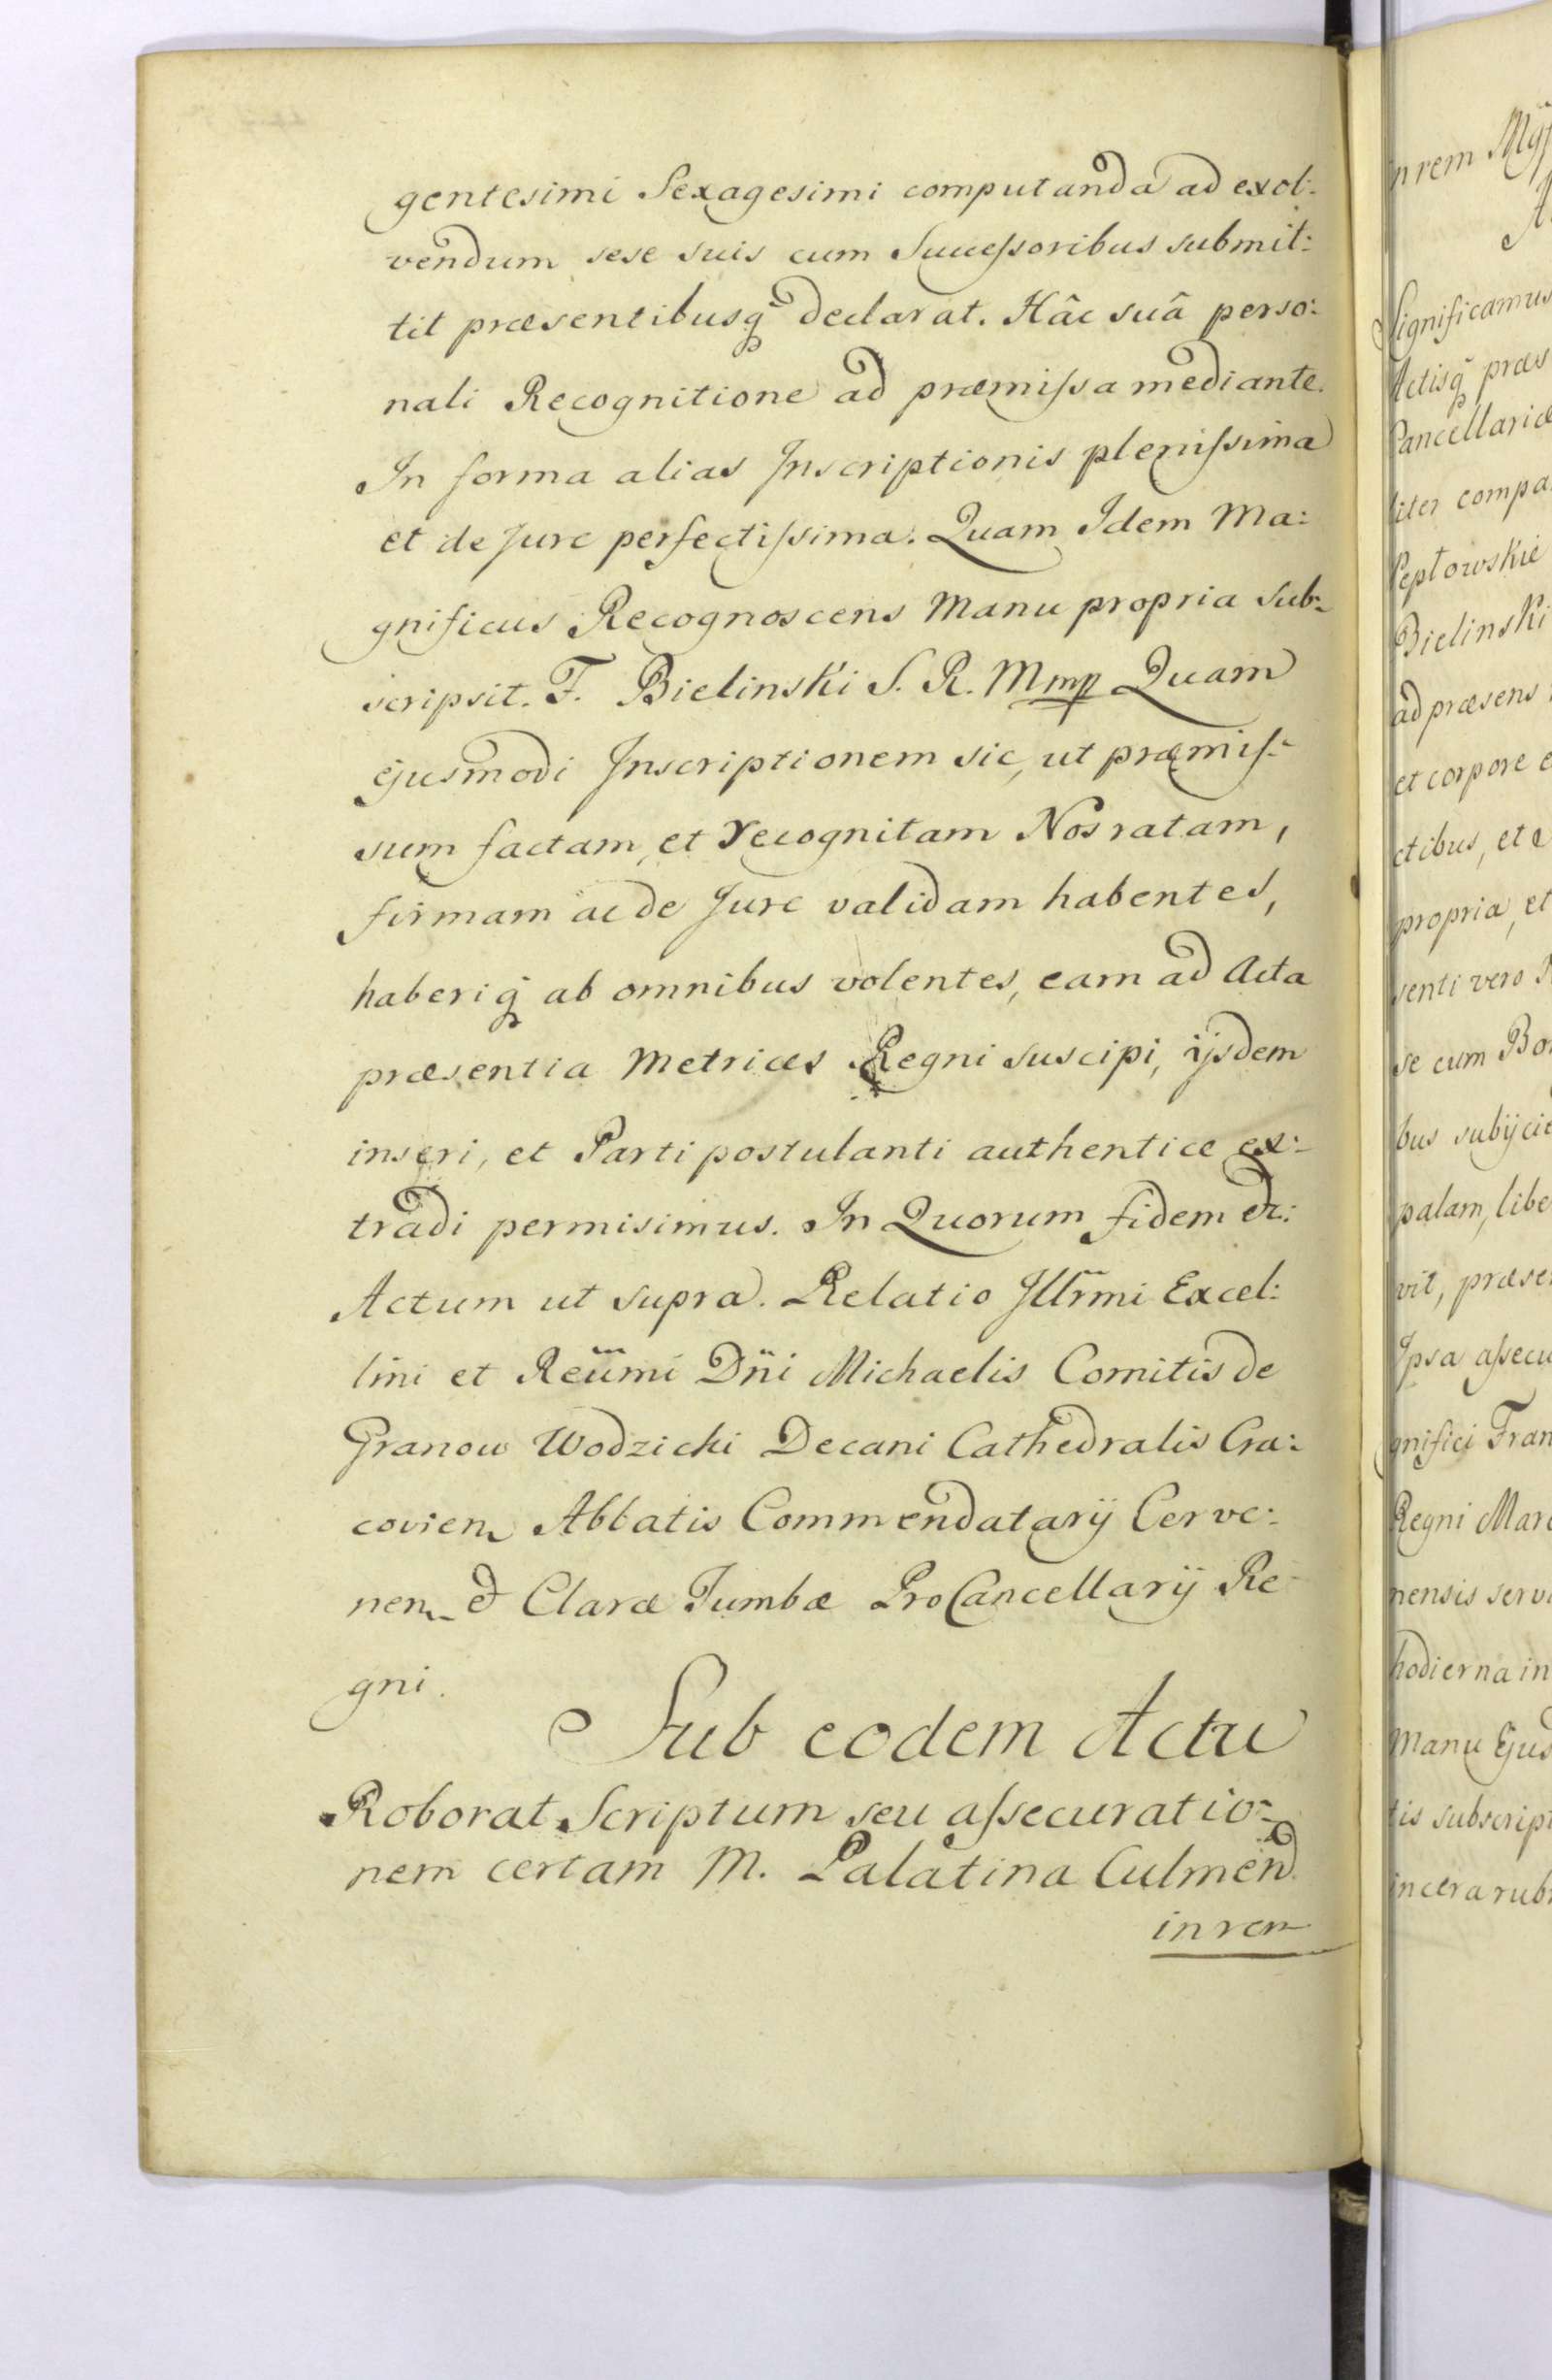 gentesimi Sexagesimi computanda ad exol:
vendum sese suis cum Succeſsoribus submit:
tit præsentibusq̃ declarat. Hâc suâ perso:
nali Recognitione ad præmiſsa mediante.
In forma alias Inscriptionis pleniſsima
et de Jure perfectiſsima. Quam Idem Ma:
gnificus Recognoscens Manu propria sub:
scripsit. F. Bielinski S. R. M mp Quam
ejusmodi Inscriptionem sic, ut præmiſ:
sum factam, et recognitam Nos ratam,
firmam ac de Jure validam habentes,
haberiq̃ ab omnibus volentes, eam ad Acta
præsentia Metrices Regni suscipi, ijsdem
inseri, et Parti postulanti authentice ex:
tradi permisimus. In Quorum fidem &:
Actum ut supra. Relatio Illr̃mi Excel:
lm̃i et Reũmi Dñi Michaelis Comitis de
Granow Wodzicki Decani Cathedralis Cra:
covien Abbatis Commendatarij Cerve:
nen & Claræ Tumbæ ProCancellarij Re
gni.
Sub eodem Actu
Roborat Scriptum seu aſsecuratio:
nem certam M. Palatina Culmen
in rem
in rem
Significamus
Actisq̃ præs
Cancellariæ
liter compa
Peptowskie
Bielinski
ad præsens
et corpore e
ctibus, et e
propria, et
senti vero
se cum Bo
bus subijcie
palam, libe
vit, præse
Ipsa aſsecu
gnifici Fran
Regni Mar
nensis serv
hodierna in
Manu Ejus
tis subscrip
in cera rub